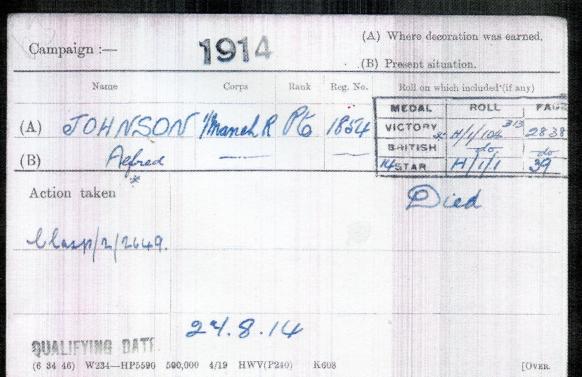 Campaign :— 1914 (A) Where decoration was earned.
(B) Present situation.
Name Corps Rank Reg. No. Roll on which included (if any)
MEDAL ROLL PAGE
(A) JOHNSON 1/Manch R Pte 1854
VICTORY * H/1/104 B13 2838
(B) Alfred — —
BRITISH do do
14 STAR H/1/1 39
*
Action taken Died
Clasp/2/2649.
24.8.14
QUALIFYING DATE
(6 34 46) W234—HP5590 500,000 4/19 HWV(P240) K608 [OVER.